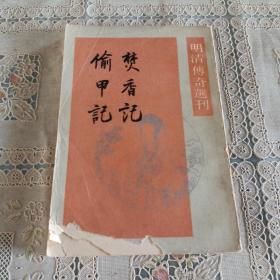 明清傳奇選刊
焚香記
偷甲記